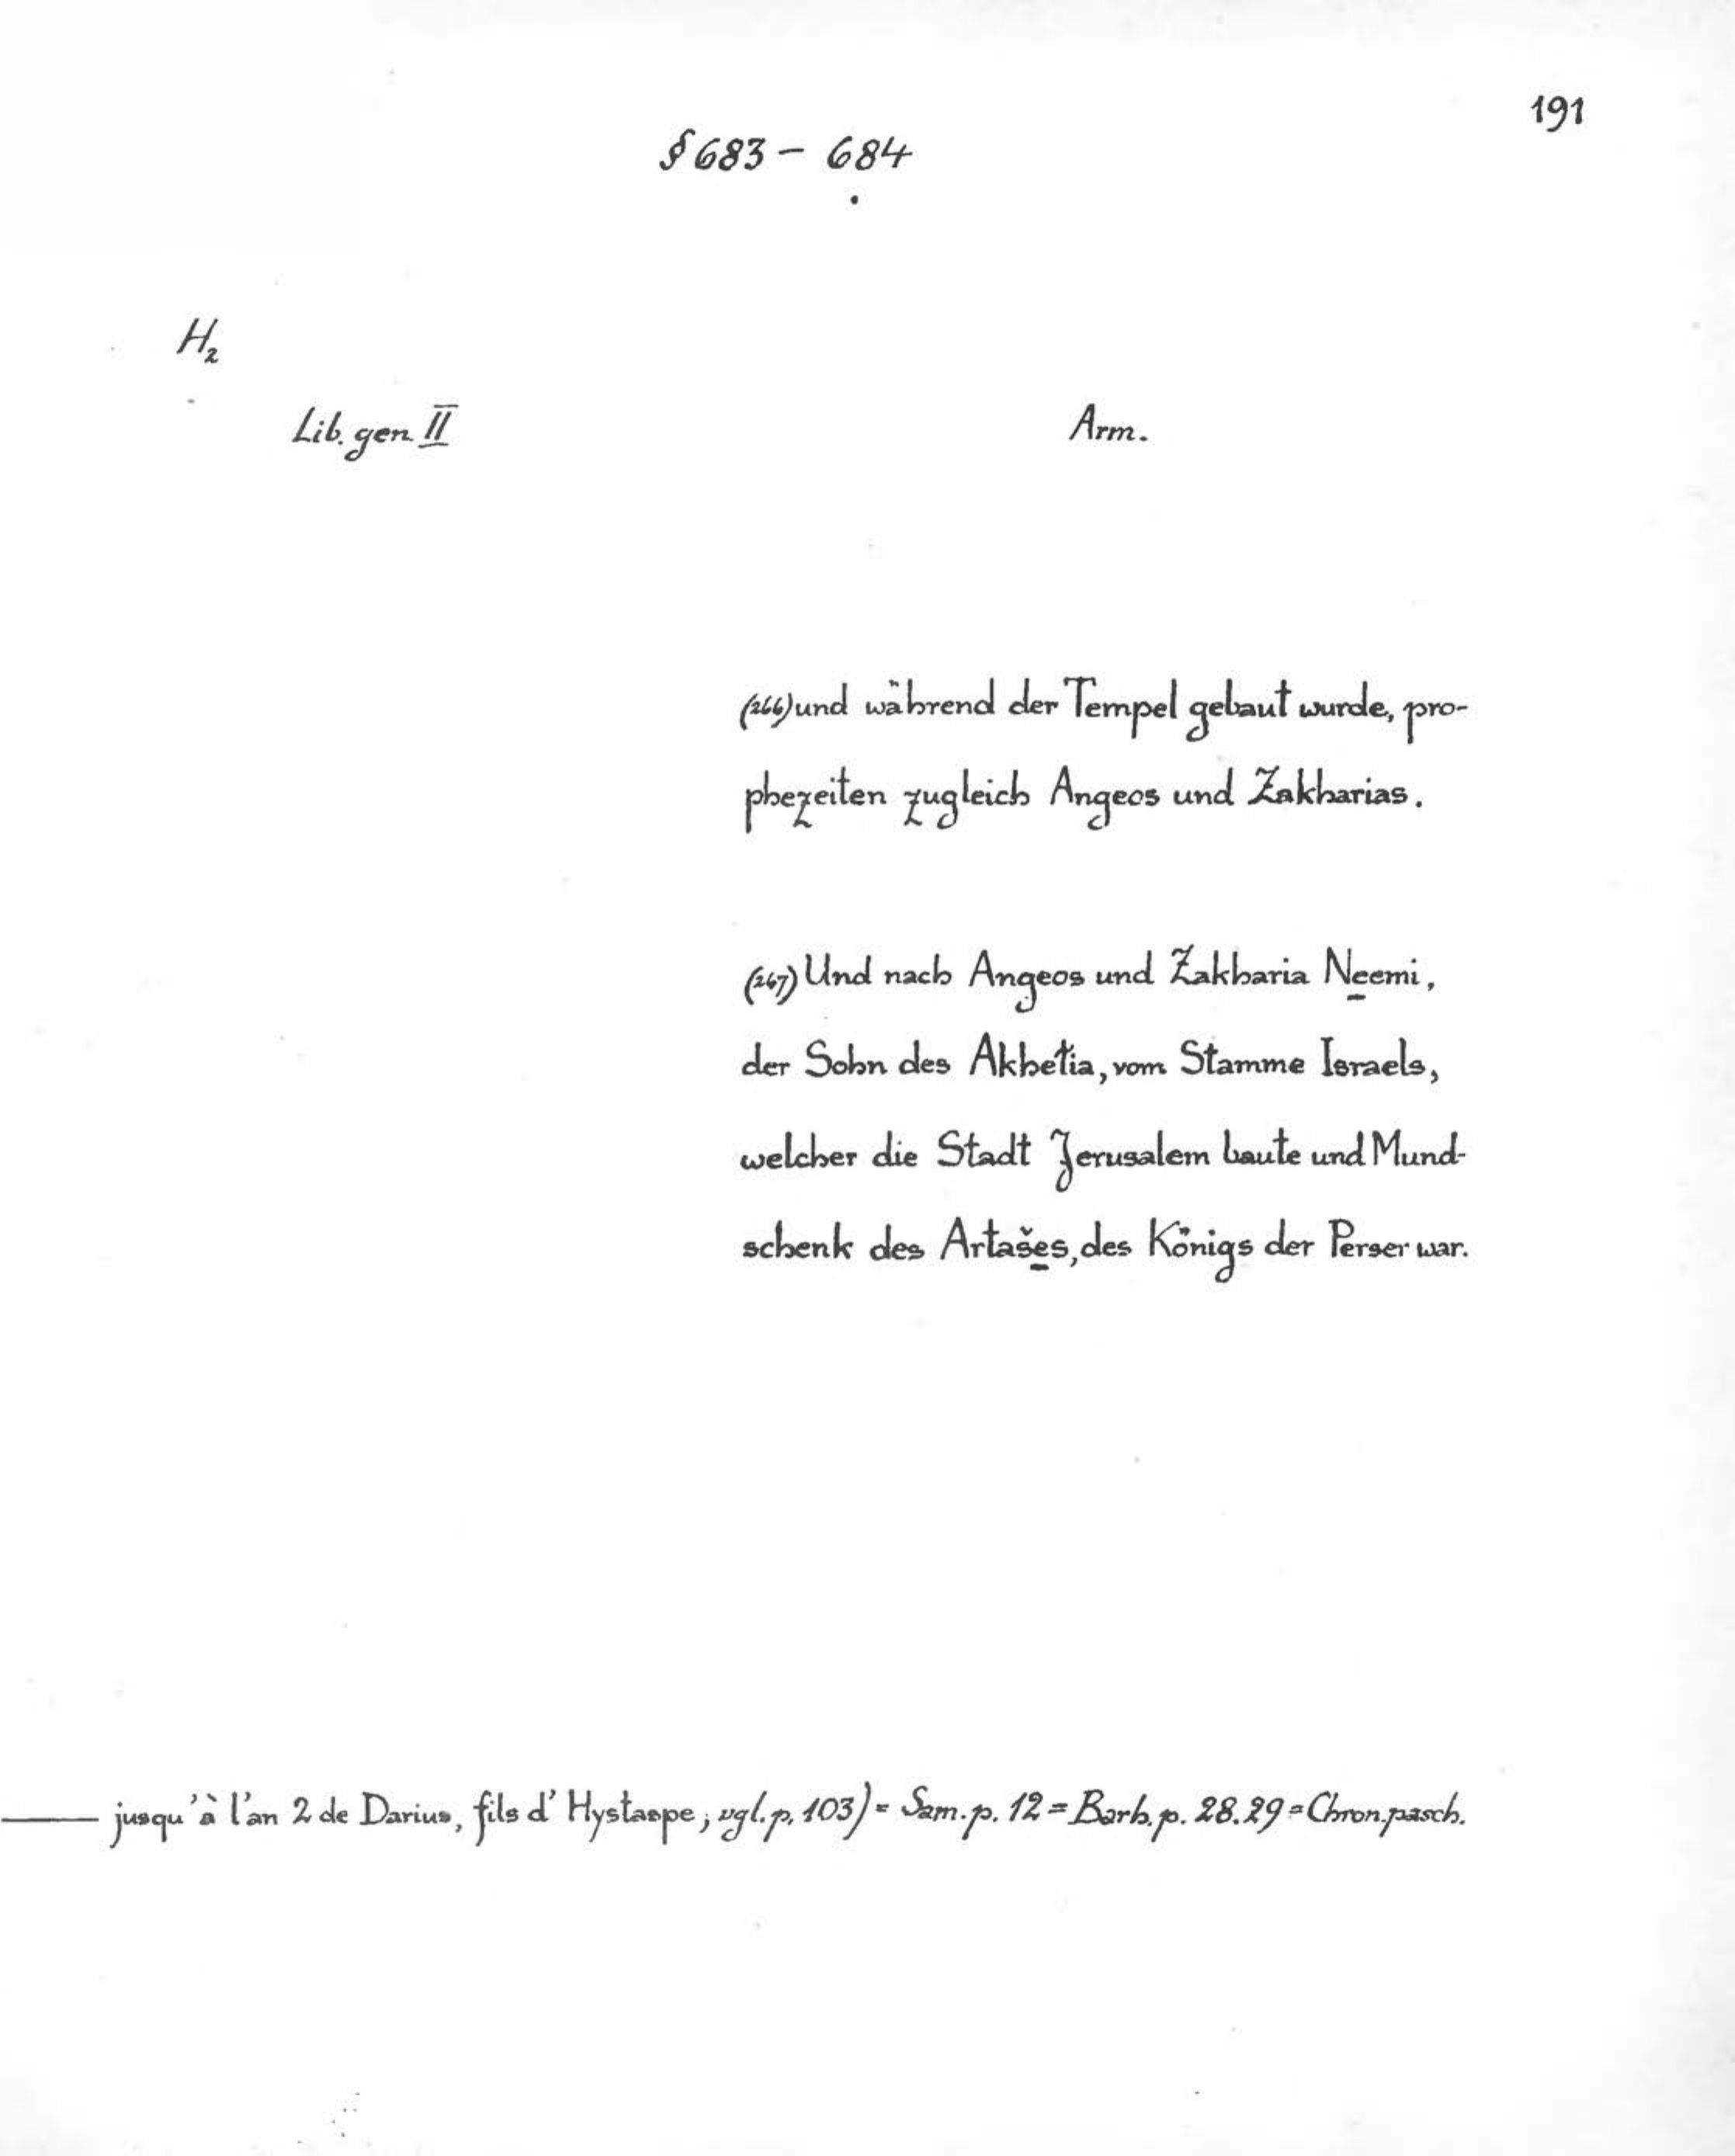 191
§ 683 – 684
H₂
Lib. gen. II
Arm.
(266) und während der Tempel gebaut wurde, pro-
phezeiten zugleich Angeos und Zakharias.
(267) Und nach Angeos und Zakharia Ne̱emi,
der Sohn des Akhetia, vom Stamme Israels,
welcher die Stadt Jerusalem baute und Mund-
schenk des Artaše̱s, des Königs der Perser war.
jusqu'à l'an 2 de Darius, fils d' Hystaspe; vgl. p. 103) = Sam. p. 12 = Barb. p. 28.29 = Chron. pasch.